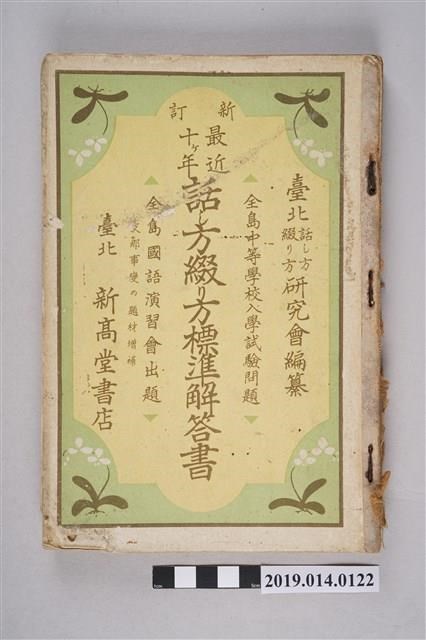 新訂
臺北話し方綴り方研究會編纂
全島中等學校入學試驗問題
最近十ヶ年話し方綴り方標準解答書
全島國語演習會出題
支那事變の題材增補
臺北 新高堂書店
2019.014.0122